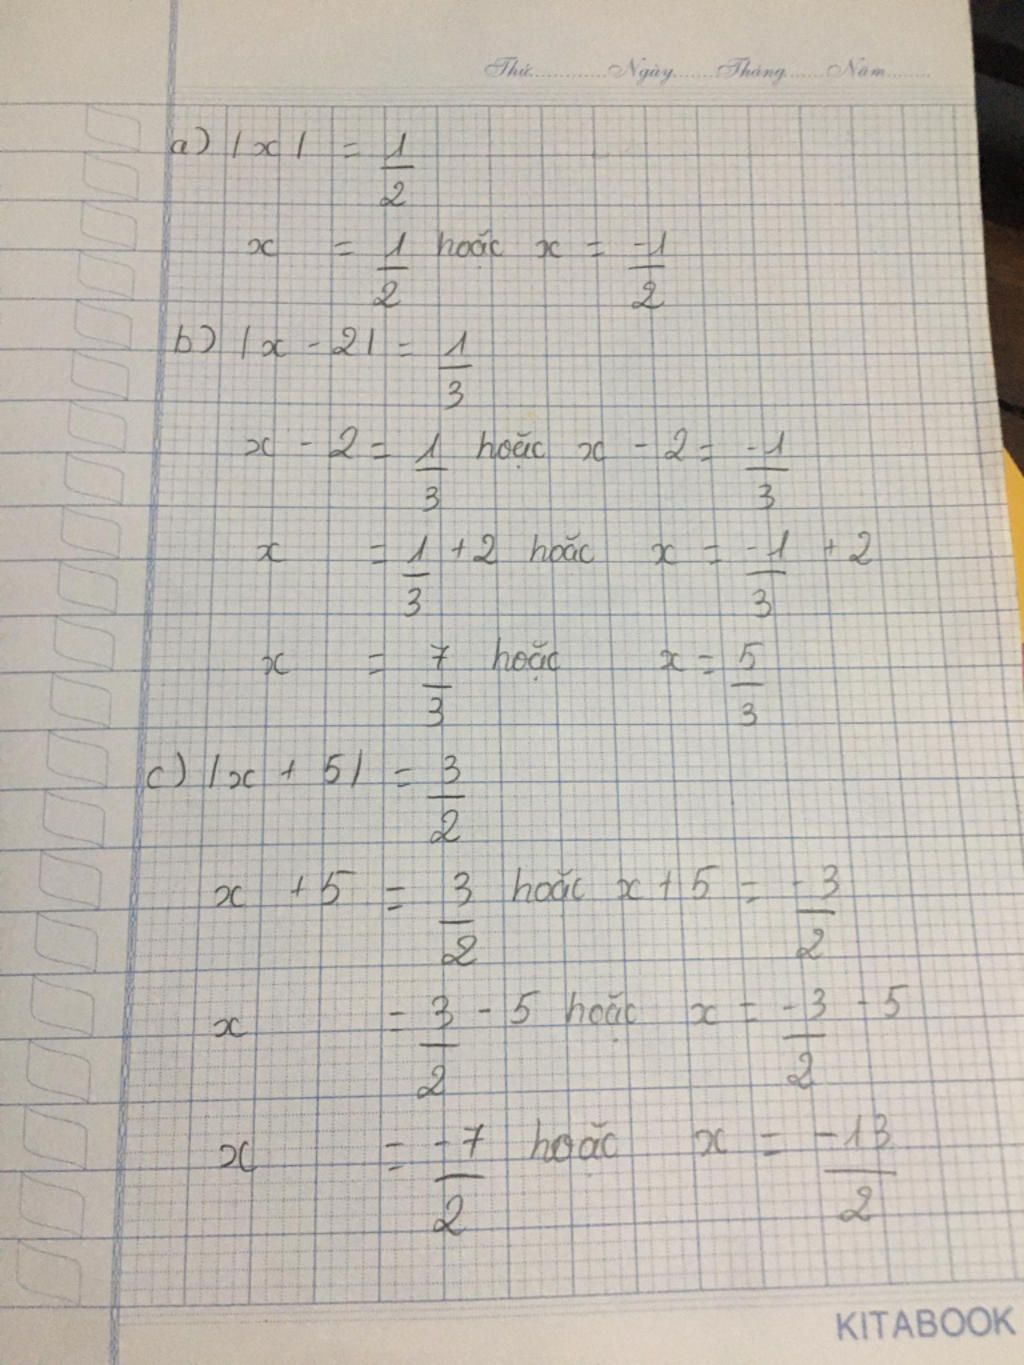 Thứ.............Ngày.......Tháng.......Năm........
a) |x| = 1/2
x = 1/2 hoặc x = -1/2
b) |x - 2| = 1/3
x - 2 = 1/3 hoặc x - 2 = -1/3
x = 1/3 + 2 hoặc x = -1/3 + 2
x = 7/3 hoặc x = 5/3
c) |x + 5| = 3/2
x + 5 = 3/2 hoặc x + 5 = -3/2
x = 3/2 - 5 hoặc x = -3/2 - 5
x = -7/2 hoặc x = -13/2
KITABOOK